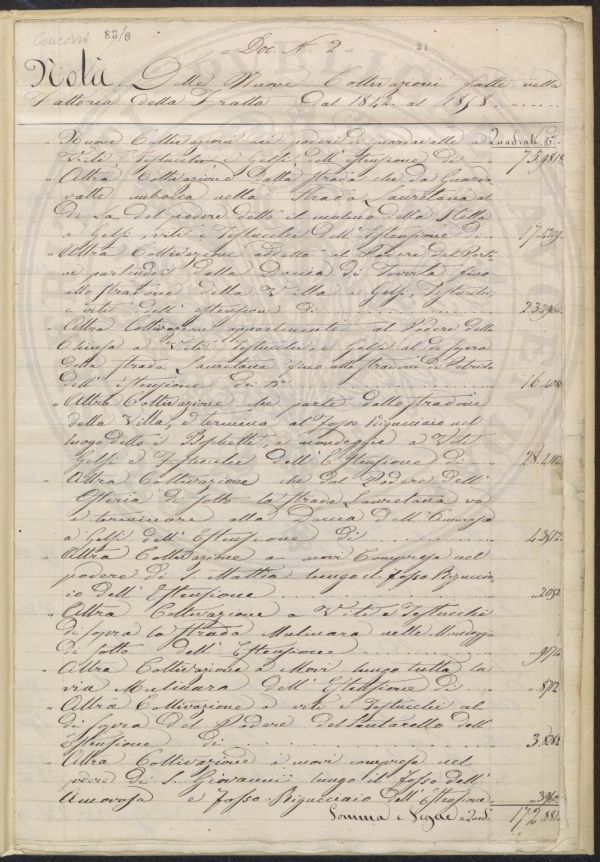 Concorsi 83/8
= Doc. N. 2 = 21
Nota. Delle Nuove Coltivazioni fatte nella
Fattoria della Fratta dal 1842 al 1858.
" Nuove Coltivazioni nei poderi di Guardavalle a Quadrati
Viti, Testucchi e Gelsi dell'estensione di 75.
" Altra Coltivazione dalla strada che da Guarda
valle imbocca nella Strada Lauretana al
di La del podere detto il mulino della Stella
a Gelsi, viti e Testucchi dell'Estensione di 17.
" Altra Coltivazione addetta al Podere del Porto
ne partendosi dalla Doccia di fino
allo stradone della Villa a Gelsi, Testucchi,
e viti dell'estensione di 23.
" Altra Coltivazione appartenente al Podere della
Chiusa a Viti Testucchi, e Gelsi al di sopra
della strada Lauretana fino allo stradone di
dell'estensione di 16.
" Altra Coltivazione che parte dallo stradone
della Villa, e termina al Fosso Rigucciaio nel
luogo detto i Boschetti, e a Viti
Gelsi e Testucchi dell'Estensione di 28.
" Altra Coltivazione che dal Podere dell'
Osteria di sotto la strada Lauretana va
a terminare alla Doccia dell'Amorosa
a Gelsi dell'Estensione di 4.
" Altra Coltivazione a mori Compresa nel
podere di S. Mattia lungo il fosso Riguccia
io dell'Estensione
" Altra Coltivazione a Viti e Testucchi
di sopra la strada Mulinara nelle
di sotto dell'Estensione
" Altra Coltivazione a Mori lungo tutta la
via Mulinara dell'Estensione di
" Altra Coltivazione a viti e Testucchi al
di sopra del Podere del dell'
Estensione di 3.
" Altra Coltivazione a mori compresa nel
podere di S. Giovanni lungo il Fosso dell'
Amorosa e Fosso Rigucciaio dell'Estensione
Somma e Segue 172.